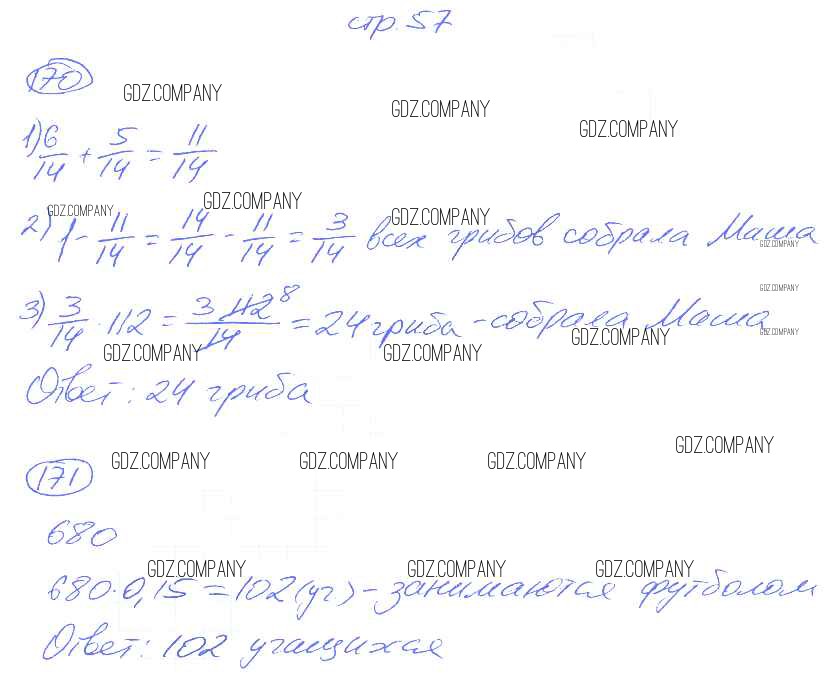 стр. 57
170
GDZ.COMPANY GDZ.COMPANY GDZ.COMPANY
1) 6/14 + 5/14 = 11/14
GDZ.COMPANY GDZ.COMPANY GDZ.COMPANY
2) 1 - 11/14 = 14/14 - 11/14 = 3/14 всех грибов собрала Маша
GDZ.COMPANY
GDZ.COMPANY
3) 3/14 · 112 = 3 112 8/14 = 24 гриба - собрала Маша
GDZ.COMPANY GDZ.COMPANY GDZ.COMPANY GDZ.COMPANY
Ответ: 24 гриба
GDZ.COMPANY GDZ.COMPANY GDZ.COMPANY GDZ.COMPANY
171
680
GDZ.COMPANY GDZ.COMPANY GDZ.COMPANY
680 · 0,15 = 102 (уч) - занимаются футболом
Ответ: 102 учащихся